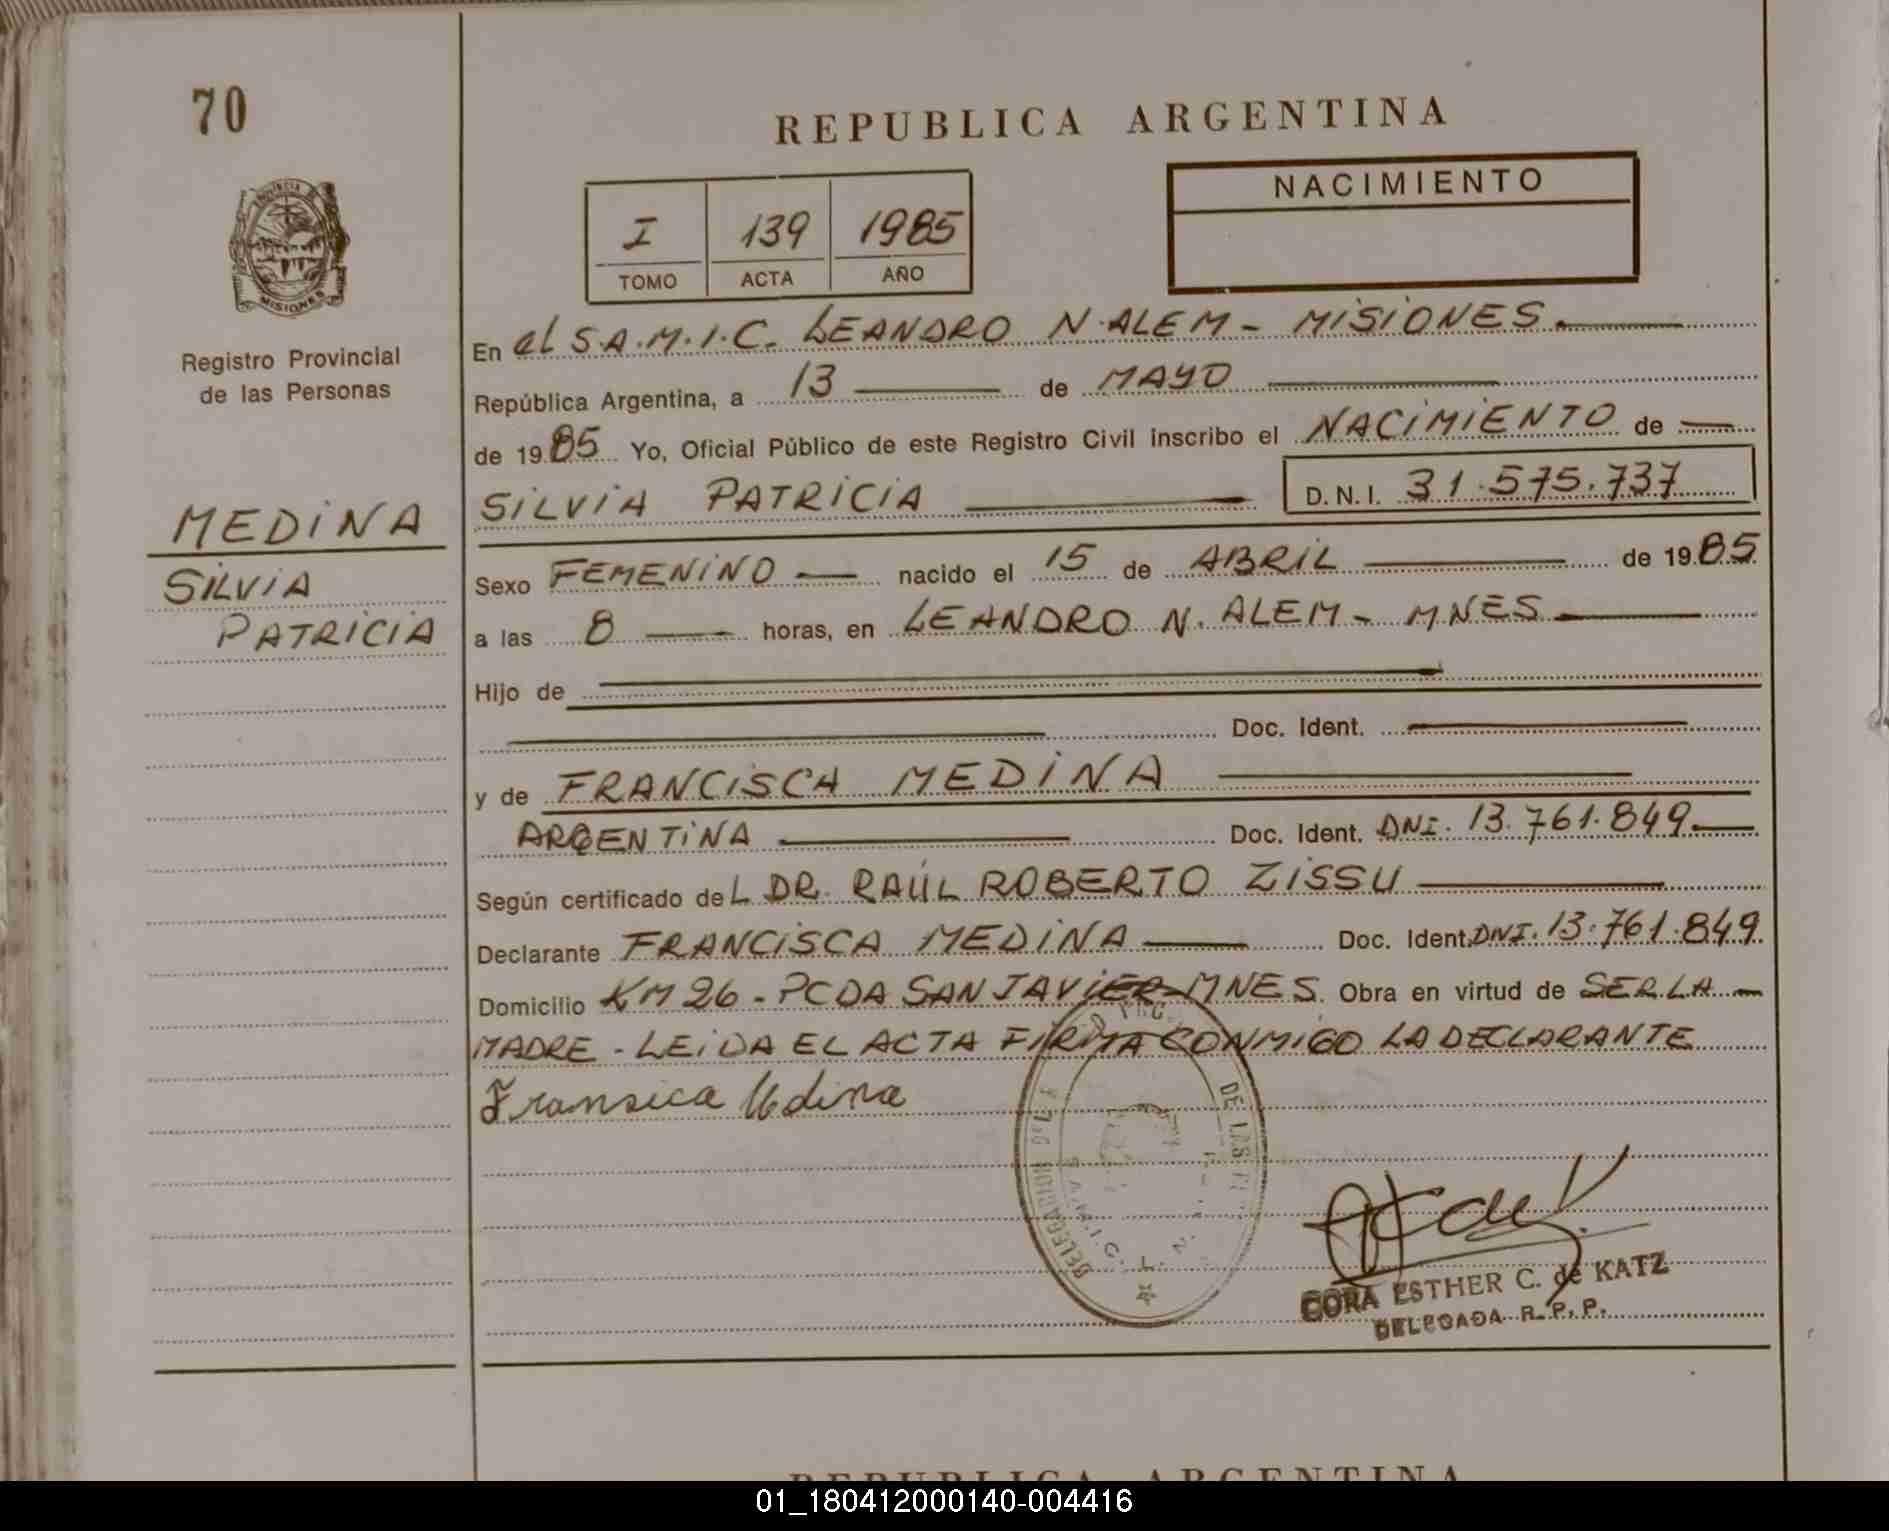 70
REPUBLICA ARGENTINA
I 139 1985
TOMO ACTA AÑO
NACIMIENTO
MISIONES
Registro Provincial
de las Personas
MEDINA
SILVIA
PATRICIA
En el S.A.M.I.C. LEANDRO N. ALEM - MISIONES.
República Argentina, a 13 de MAYO
de 1985 Yo, Oficial Público de este Registro Civil inscribo el NACIMIENTO de
SILVIA PATRICIA D.N.I. 31.575.737
Sexo FEMENINO nacido el 15 de ABRIL de 1985
a las 8 horas, en LEANDRO N. ALEM - MNES
Hijo de
Doc. Ident.
y de FRANCISCA MEDINA
ARGENTINA Doc. Ident. DNI. 13.761.849
Según certificado deL DR. RAÚL ROBERTO ZISSU
Declarante FRANCISCA MEDINA Doc. Ident. DNI. 13.761.849
Domicilio KM 26 - PCDA SAN JAVIER - MNES. Obra en virtud de SER LA
MADRE - LEIDA EL ACTA FIRMA CONMIGO LA DECLARANTE
Fransica Medina
DELEGACION DE LAS
S.A.M.I.C.
CORA ESTHER C. de KATZ
DELEGADA R.P.P.
REPUBLICA ARGENTINA
01_180412000140-004416